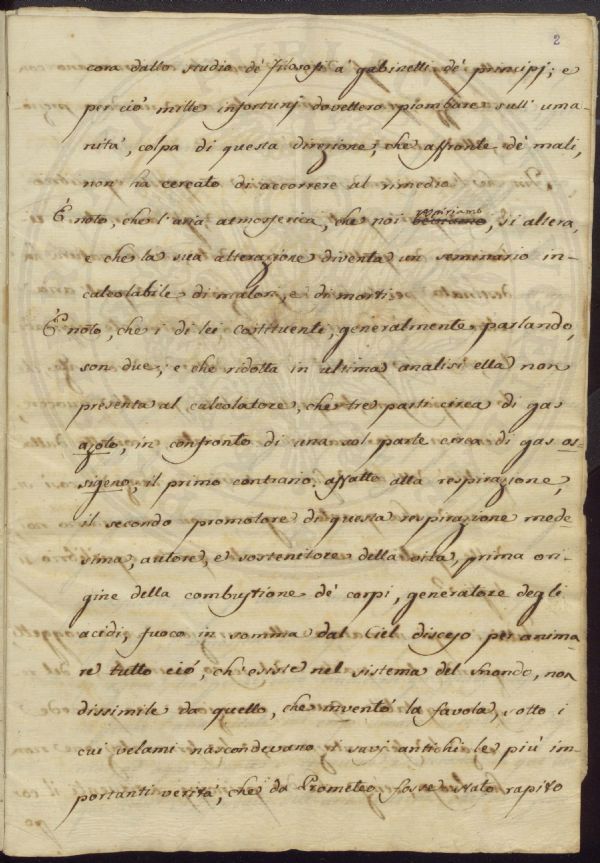 2
cora dallo studio de' Filosofi a' gabinetti de' principj; e
per ciò mille infortunj dovettero piombare sull' uma-
nita', colpa di questa direzione, che affronte de' mali,
non ha cercato di accorrere al rimedio.
È noto, che l'aria atmosferica, che noi respiriamo, si altera,
e che la sua alterazione diventa un seminario in-
calcolabile di malori, e di morti.
È noto, che i di lei costituenti, generalmente parlando,
son due; e che ridotta in ultima analisi ella non
presenta al calcolatore, che tre parti circa di gas
azoto, in confronto di una sol parte circa di gas os-
sigeno; il primo contrario affatto alla respirazione,
il secondo promotore di questa respirazione mede-
sima, autore, e sostenitore della vita, prima ori-
gine della combustione de' corpi, generatore degli
acidi, fuoco in somma dal Ciel disceso per anima-
re tutto ciò, ch'esiste nel sistema del Mondo, non
dissimile da quello, che inventò la favola, sotto i
cui velami nascondevano i savj antichi le più im-
portanti verita', che da Prometeo fosse stato rapito